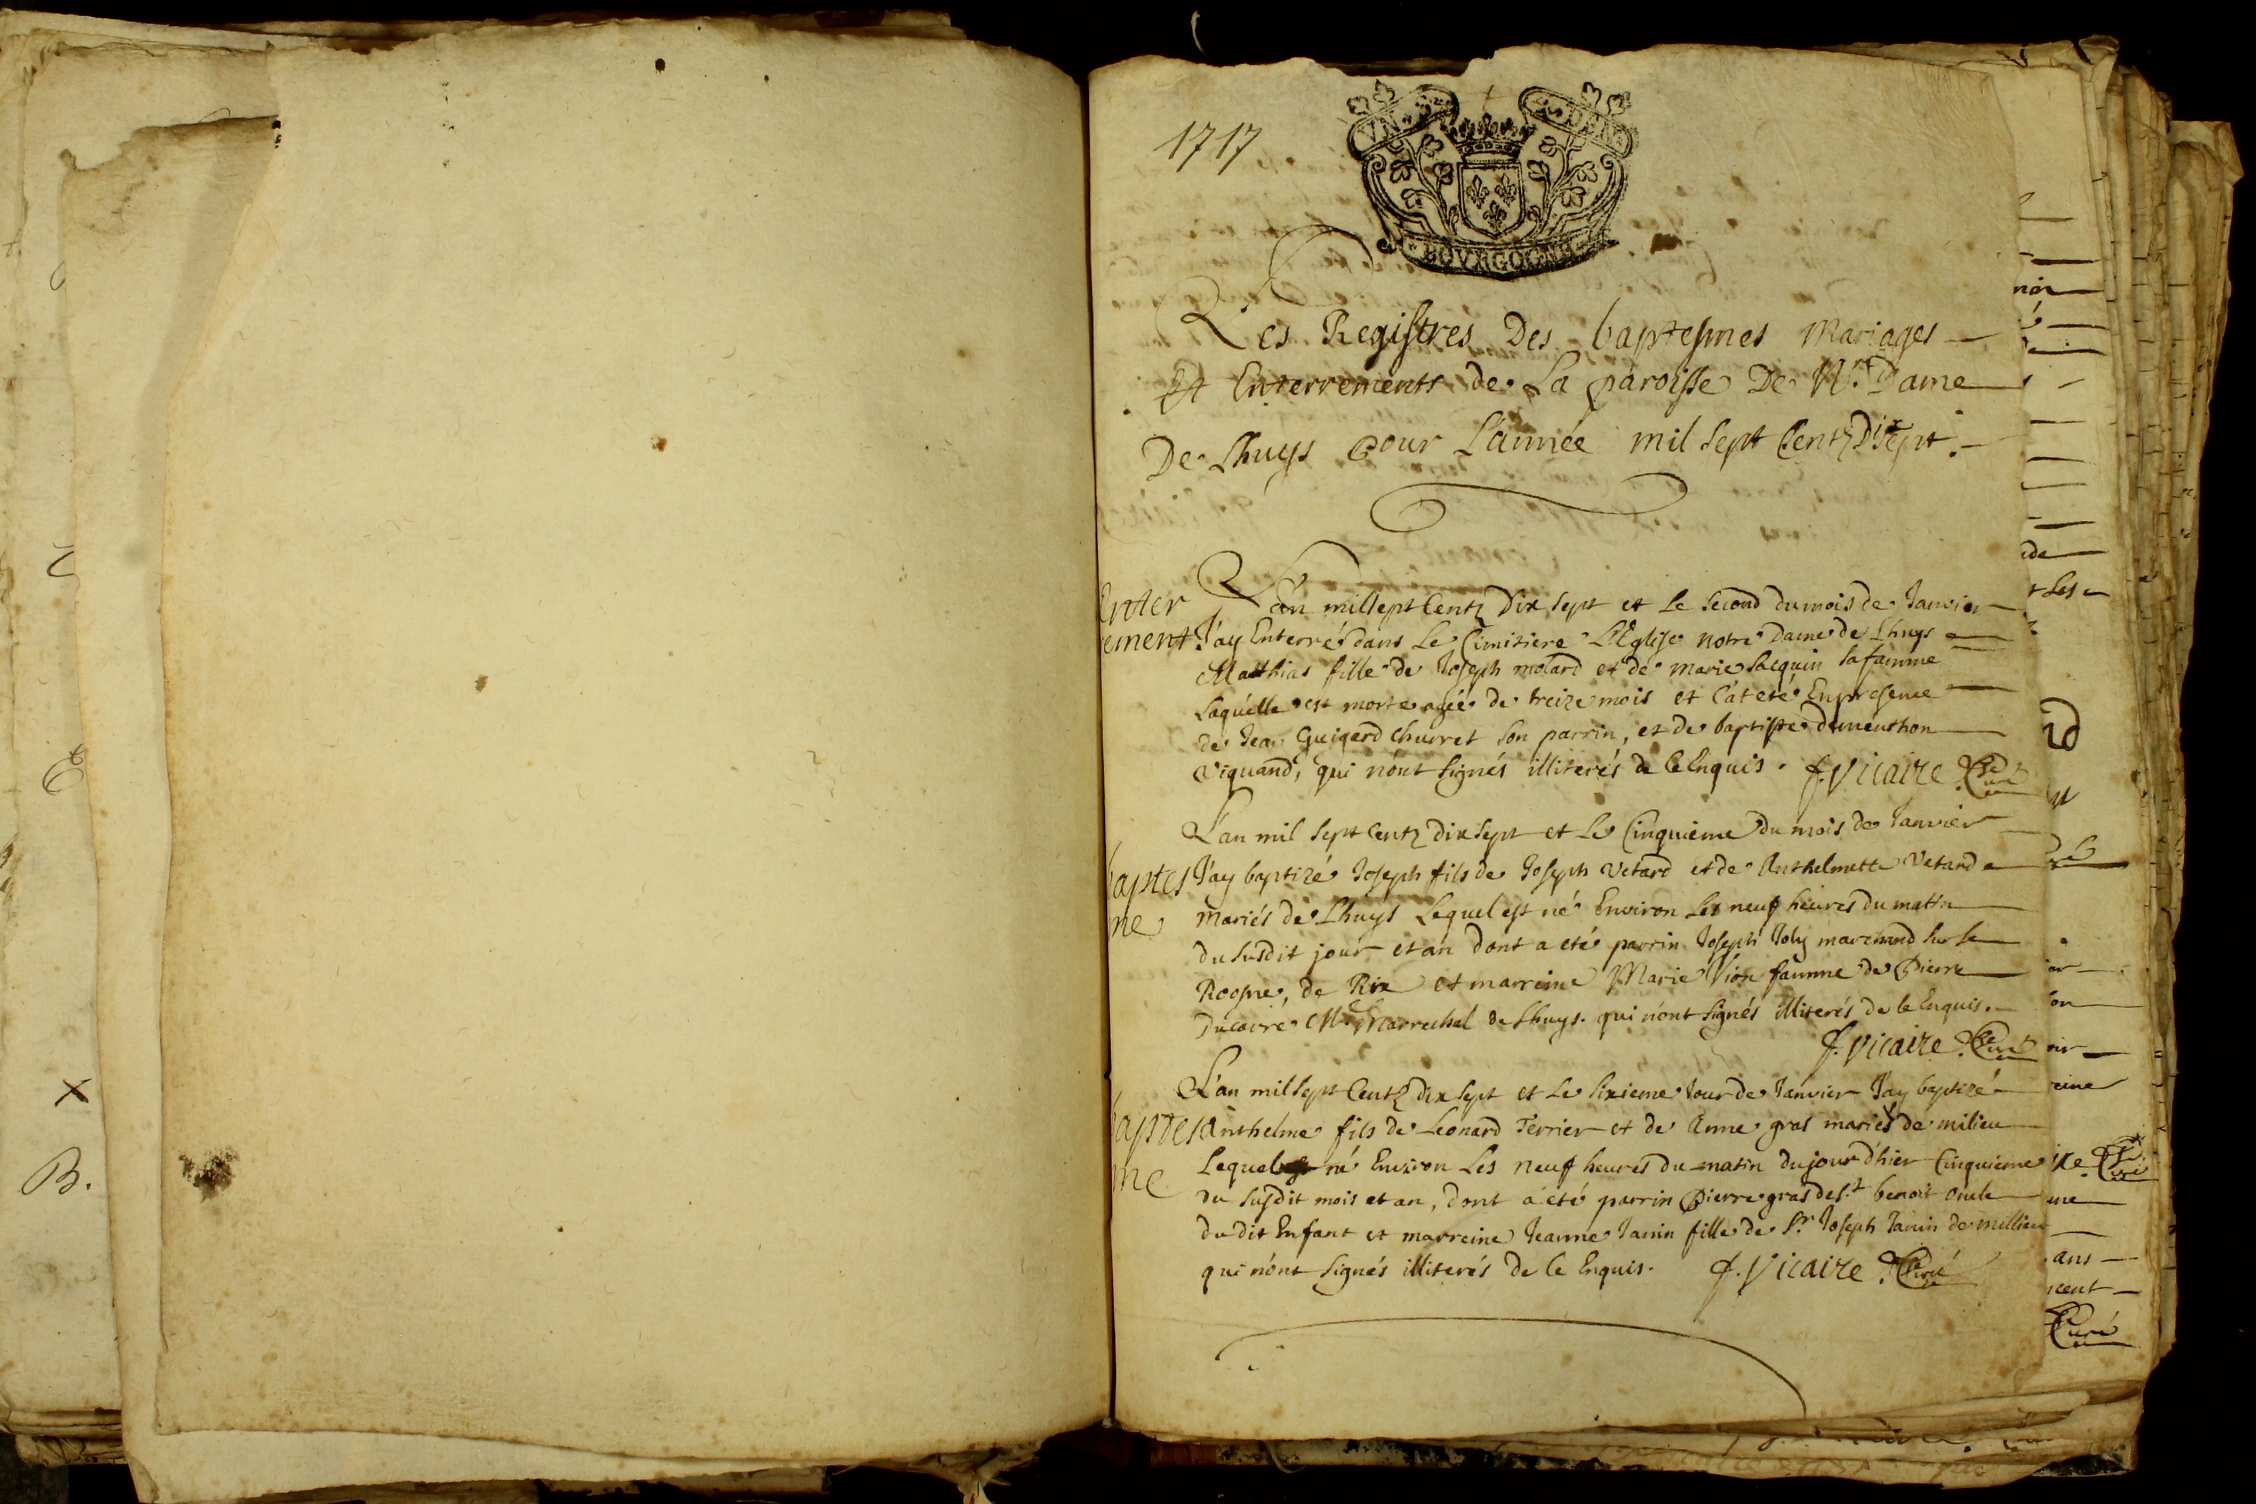 1717
VN DEN
BOVRGOGNE
Les Registres Des baptesmes Mariages
Et Enterrements de La paroisse De Nre Dame
De Lhuys pour L'année mil sept Centz Dixsept.
Enter
ement
L'an mil sept Centz Dix sept et Le second du mois de Janvier
J'ay Enterré dans Le Cimitiere L'Eglise notre Dame de Lhuys
Matthias fille de Joseph molard et de marie Jacquin sa famme
Laquelle est morte agée de treize mois et C'at eté En presence
de Jean Guigard Churret son parrin, et de baptiste dumenthon
Viquand, qui n'ont signés illiterés de ce Enquis. f. Vicaire Curé
L'an mil sept Centz Dix sept et Le Cinquieme du mois de Janvier
baptes
me
J'ay baptizé Joseph fils de Joseph Vetard et de Anthelmette Vetard
mariés de Lhuys Lequel est né Environ Les neuf heures du matin
du susdit jour et an dont a eté parrin Joseph Joly marchand sur le
Roosne, de Rix et marreine Marie Vion famme de Pierre
Ducoire Mre Marrechal de Lhuys. qui n'ont signés illiterés de ce Enquis.
f. Vicaire. Curé
L'an mil sept Centz dix sept et Le sixieme Jour de Janvier J'ay baptizé
baptes
me
Anthelme fils de Leonard Terrier et de Anne gras mariés de milieu
Lequel est né Environ Les neuf heures du matin du jour d'hier Cinquieme
du susdit mois et an, dont a été parrin Pierre gras de st benoit oncle
du dit Enfant et marreine Jeanne Janin fille de Sr Joseph Janin de millieu
qui n'ont signés illiterés de ce Enquis. f. Vicaire. Curé
B.